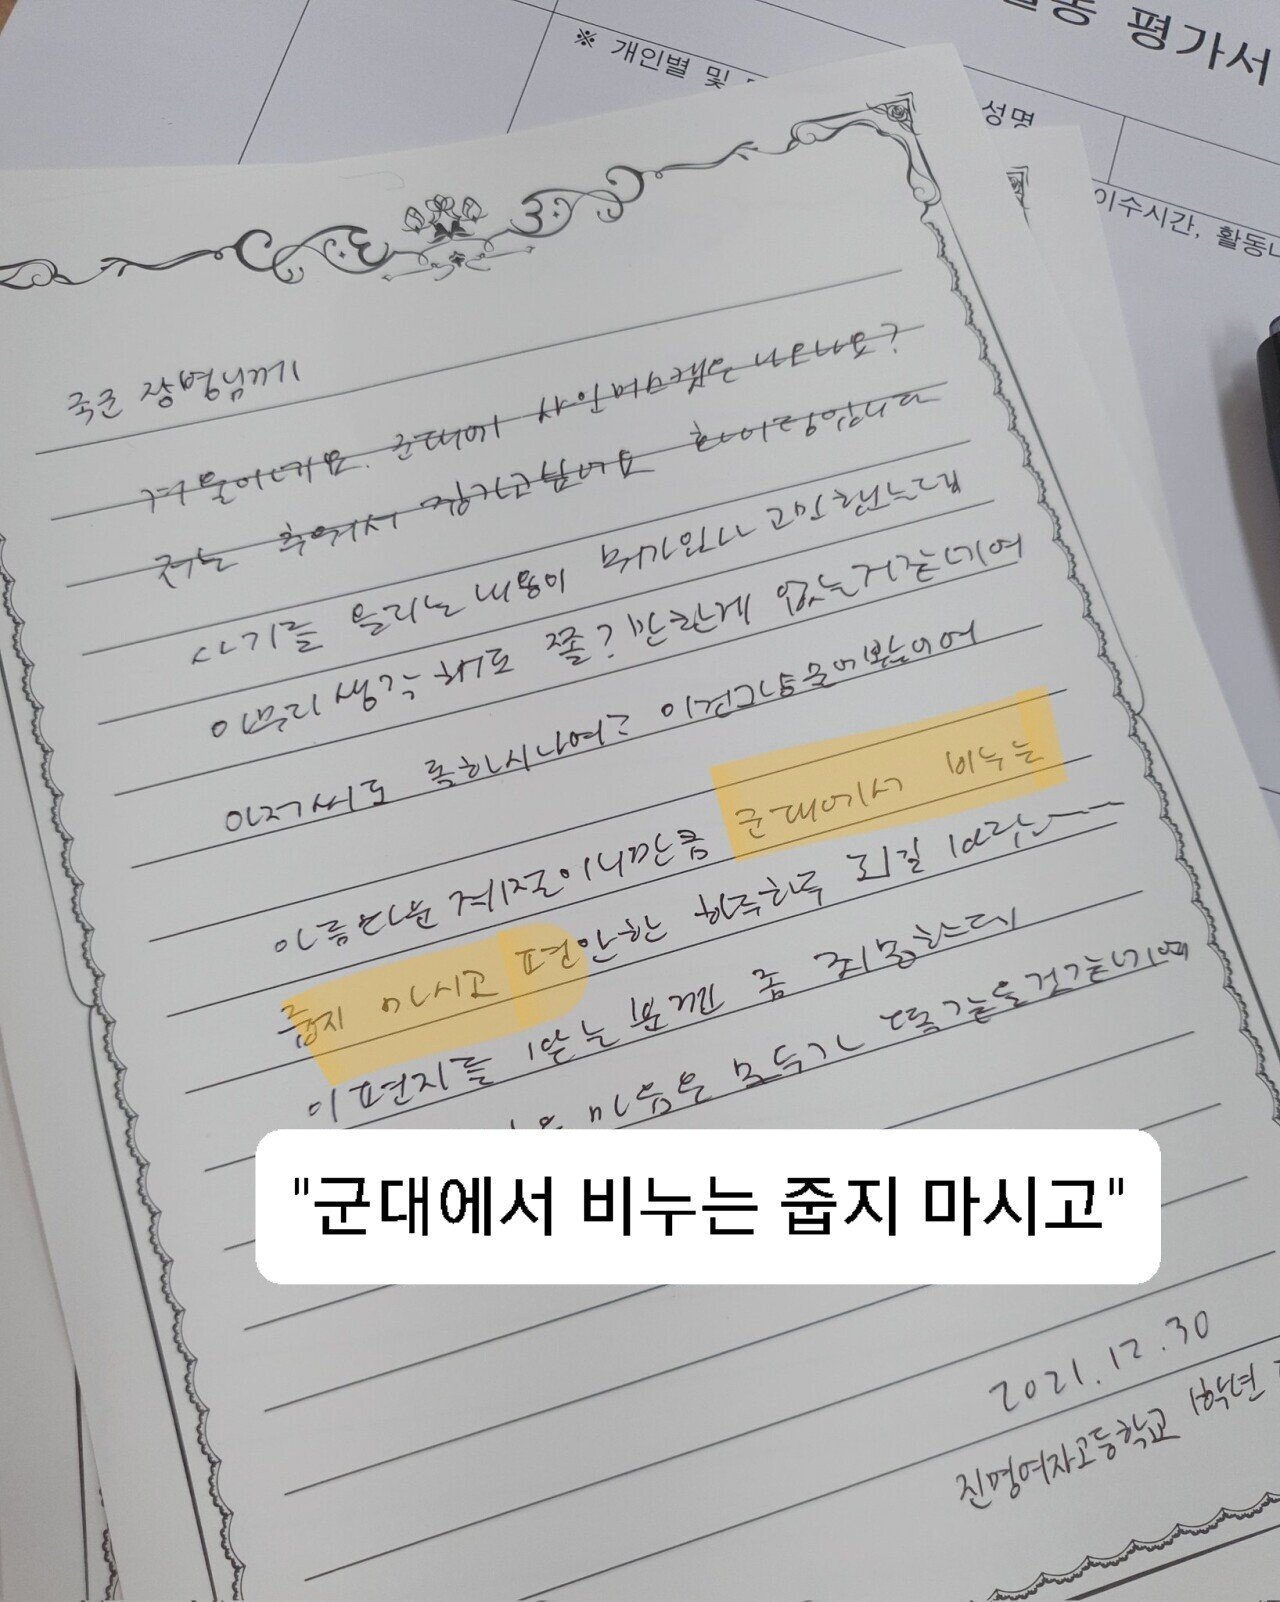 동 평가서
※ 개인별 및
성명
이수시간, 활동내
국군 장병님께
겨울이네요. 군대에 샤인머스캣은 나오나요?
저는 추워서 집가고싶네요 화이팅입니다
사기를 올리는 내용이 뭐가있나 고민했는데
아무리 생각해도 쫄? 만한게 없는거같네여
아저씨도 롤하시나여? 이건그냥물어봤어여
아름다운 계절이니만큼 군대에서 비누는
줍지 마시고 편안한 하루하루 되길 바랍니다
이 편지를 받는 분껜 좀 죄송한데
마음은 모두가 똑같을것같네여
"군대에서 비누는 줍지 마시고"
2021.12.30
진명여자고등학교 1학년